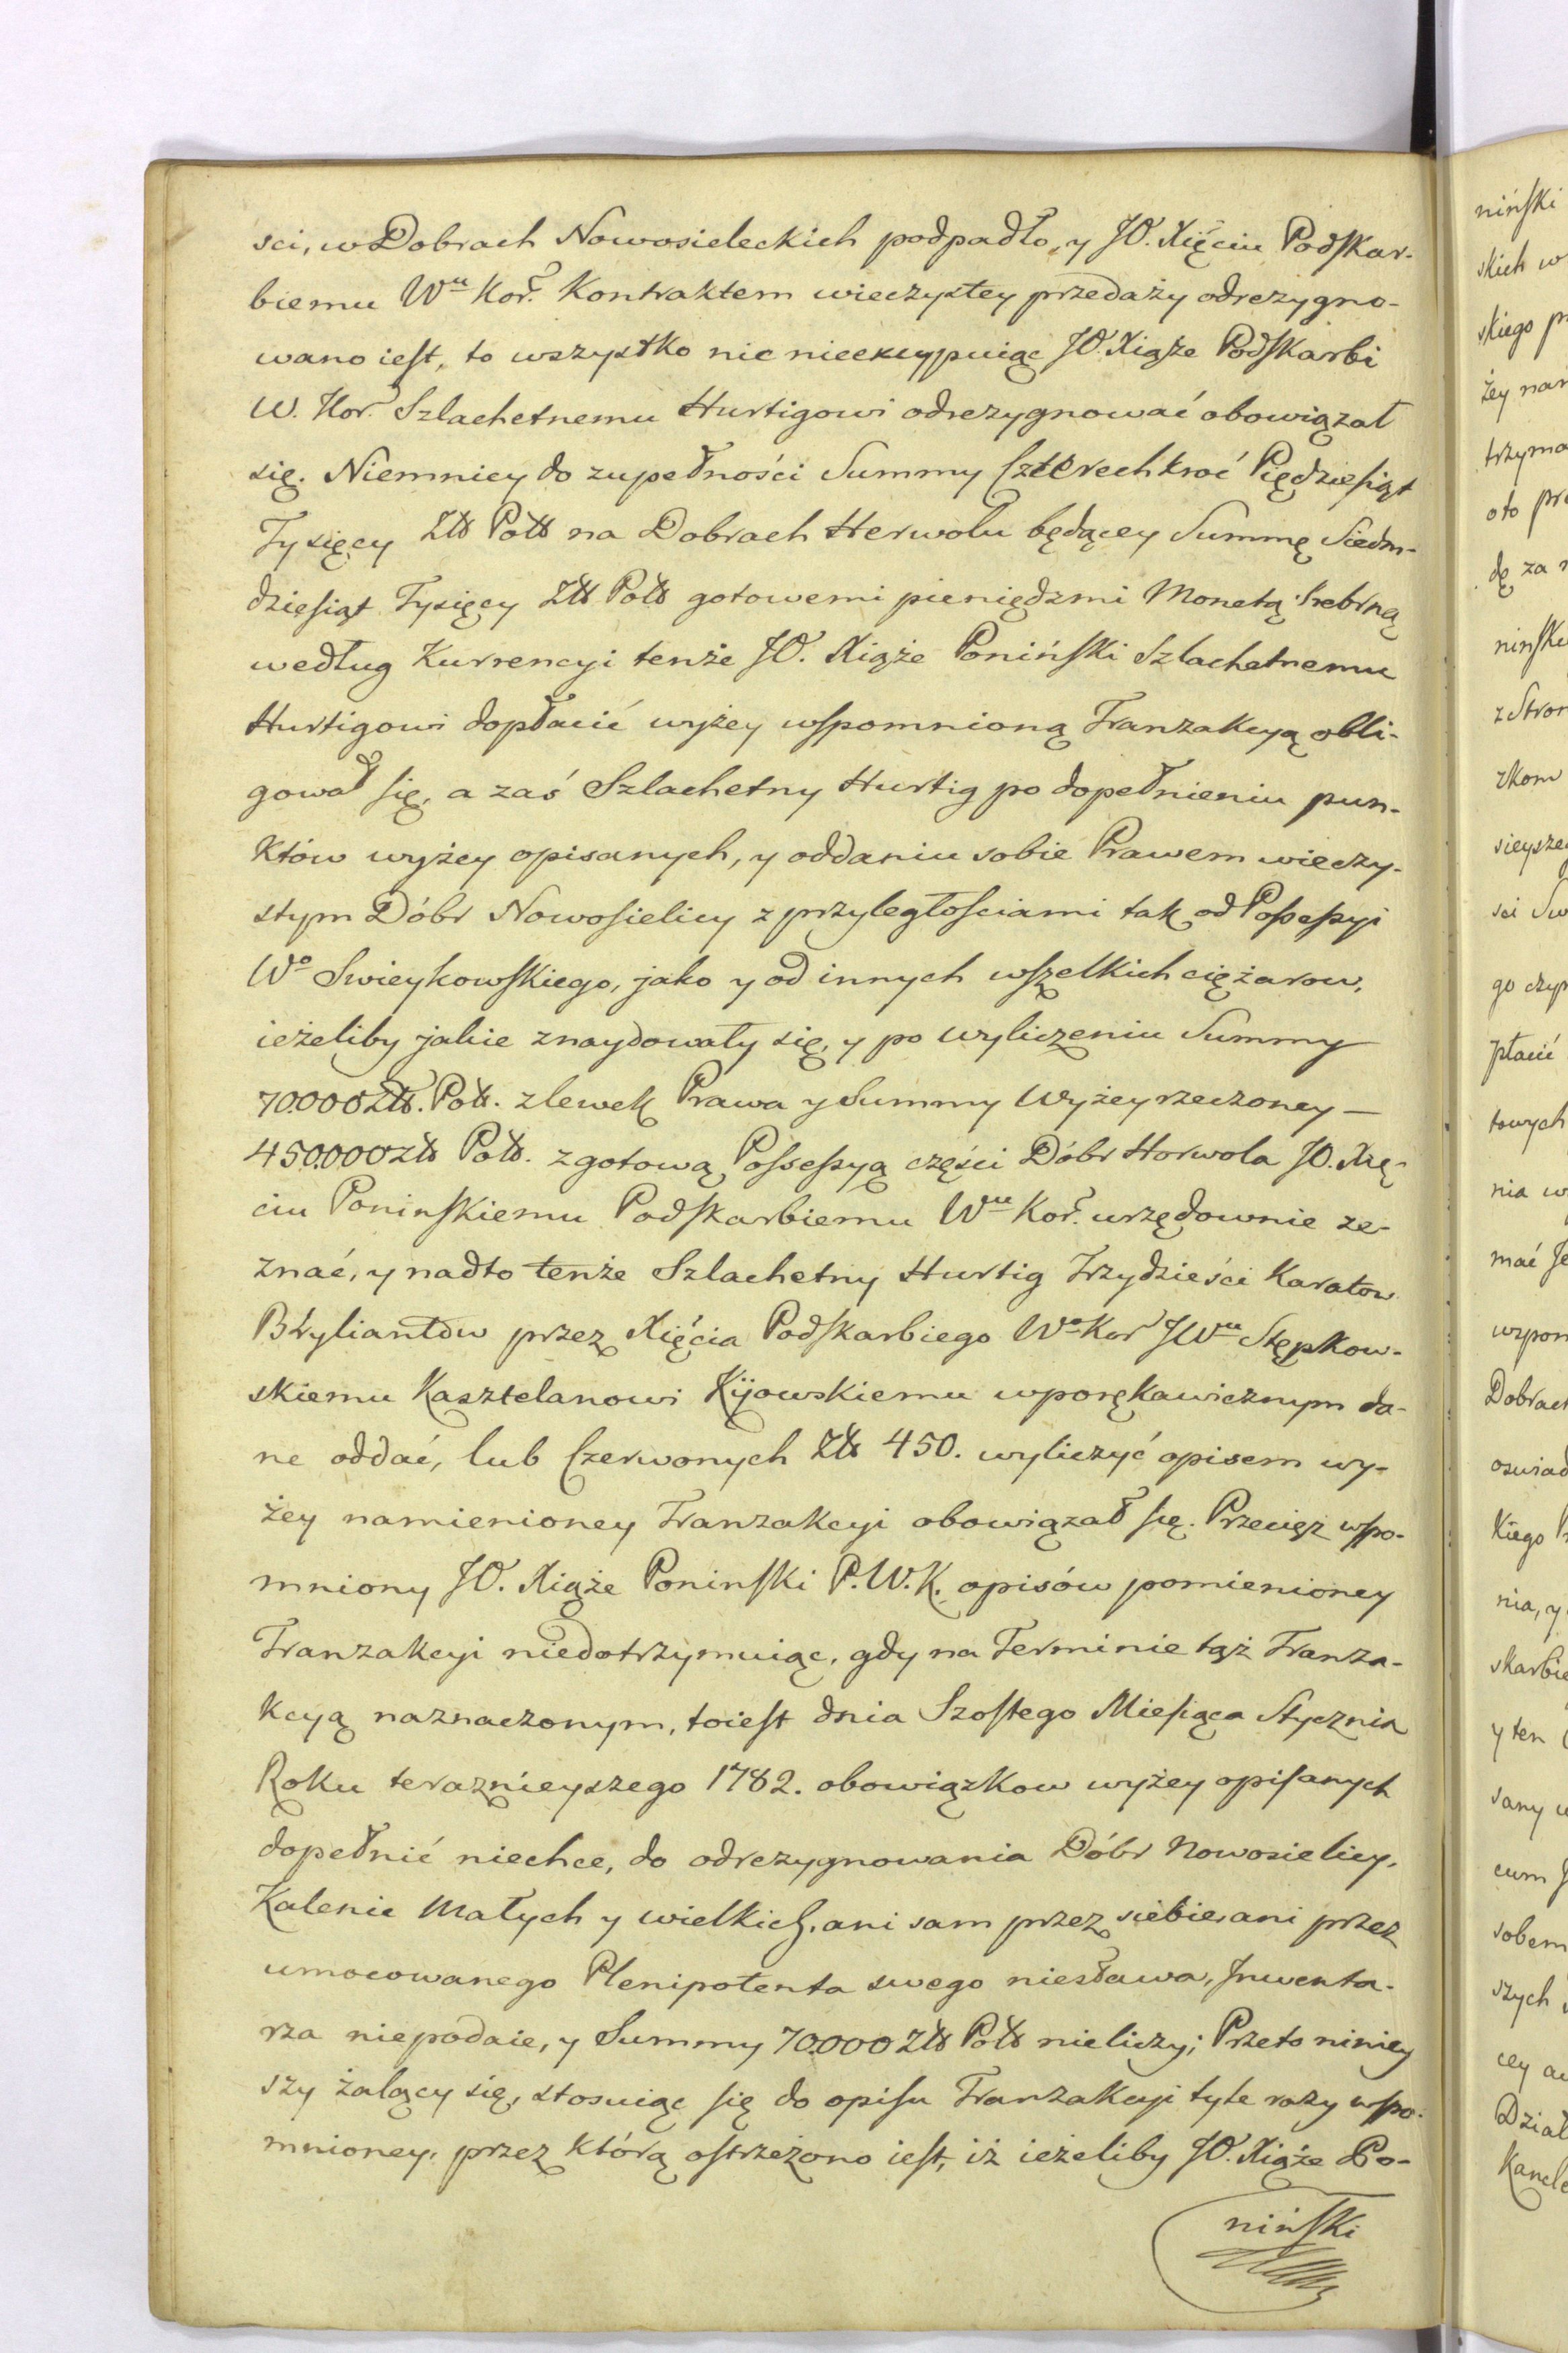 sci, w Dobrach Nowosieleckich podpadło, y JO. Xięciu Podskar-
biemu Wu Kor. Kontraktem wieczystey przedaży odrezygno-
wano iest, to wszystko nic nieexcypuiąc JO. Xiąże Podskarbi
W. Kor. Szlachetnemu Hurtigowi odrezygnować obowiązał
się. Niemniey do zupełności Summy Czterechkroć Pięćdziesiąt
Tysięcy Zł Poł na Dobrach Horwolu będącey Summę Siedm-
dziesiąt Tysięcy Zł Poł gotowemi pieniędzmi Monetą Srebrną
według Kurrencyi tenże JO. Xiąże Poniński Szlachetnemu
Hurtigowi dopłacić wyżey wspomnioną Tranzakcyą obli-
gował się, a zaś Szlachetny Hurtig po dopełnieniu pun-
któw wyżey opisanych, y oddaniu sobie Prawem wieczy-
stym Dóbr Nowosielicy z przyległościami tak od Possessyi
Wo Swieykowskiego, jako y od innych wszelkich ciężarow,
ieżeliby jakie znaydowały się, y po wyliczeniu Summy
70.000 Zł. Poł. zlewek Prawa y Summy Wyżey rzeczoney —
450.000 zł Poł. z gotową Possessyą części Dóbr Horwola JO. Xię-
ciu Poninskiemu Podskarbiemu Wu Kor. urzędownie ze-
znać, y nadto tenże Szlachetny Hurtig Trzydzieści Karatow
Brylantów przez Xięcia Podskarbiego Wo Kor JWu Stępkow-
skiemu Kasztelanowi Kijowskiemu w porękawicznym da-
ne oddać, lub Czerwonych Zł 450. wyliczyć opisem wy-
żey namienioney Tranzakcyi obowiązał się. Przecięż wspo-
mniony JO. Xiąże Poninski P.W.K. opisów pomienioney
Tranzakcyi niedotrzymuiąc, gdy na Terminie tąż Tranza-
kcyą naznaczonym, toiest dnia Szostego Miesiąca Stycznia
Roku teraznieyszego 1782. obowiązkow wyżey opisanych
dopełnić niechce, do odrezygnowania Dóbr Nowosielicy,
Kalenic Małych y wielkich, ani sam przez siebie, ani przez
umocowanego Plenipotenta swego niesława, Jnwenta-
rza niepodaie, y Summy 70.000 Zł Poł nieliczy; Przeto niniey
szy żalący się, stosuiąc się do opisu Tranzakcyi tyle razy wspo-
mnioney, przez którą ostrzeżono iest, iż ieżeliby JO. Xiąże Po-
niński
niński
skich w
skiego
żey
trzyma
oto
dę za
z Stron
go
płacić
towych
nia w
mać
Dobrach
Kiego
nia, y
skarbie
y ten
sany
cum
sobem
szych
cey
Dział